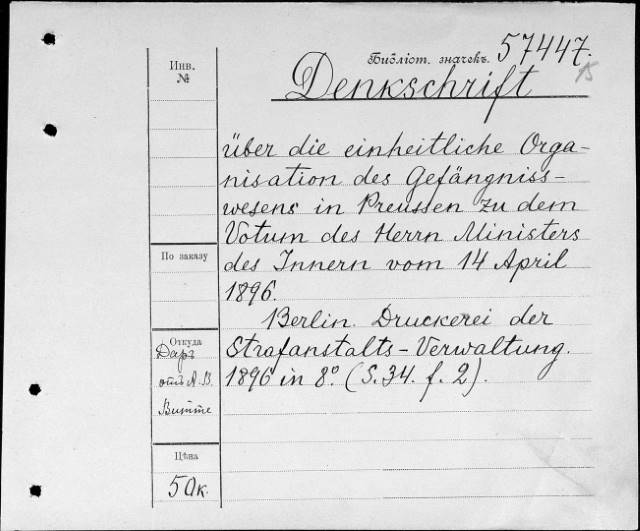 Инв.
№
Библіот. значекъ. 57447.
15
Denkschrift
über die einheitliche Orga-
nisation des Gefängniss-
wesens in Preussen zu dem
Votum des Herrn Ministers
des Innern vom 14 April
1896.
Berlin. Druckerei der
Strafanstalts-Verwaltung.
1896 in 8º. (S. 34. f. 2).
По заказу
Откуда
Даръ
отъ А. В.
Витте
Цѣна
50к.